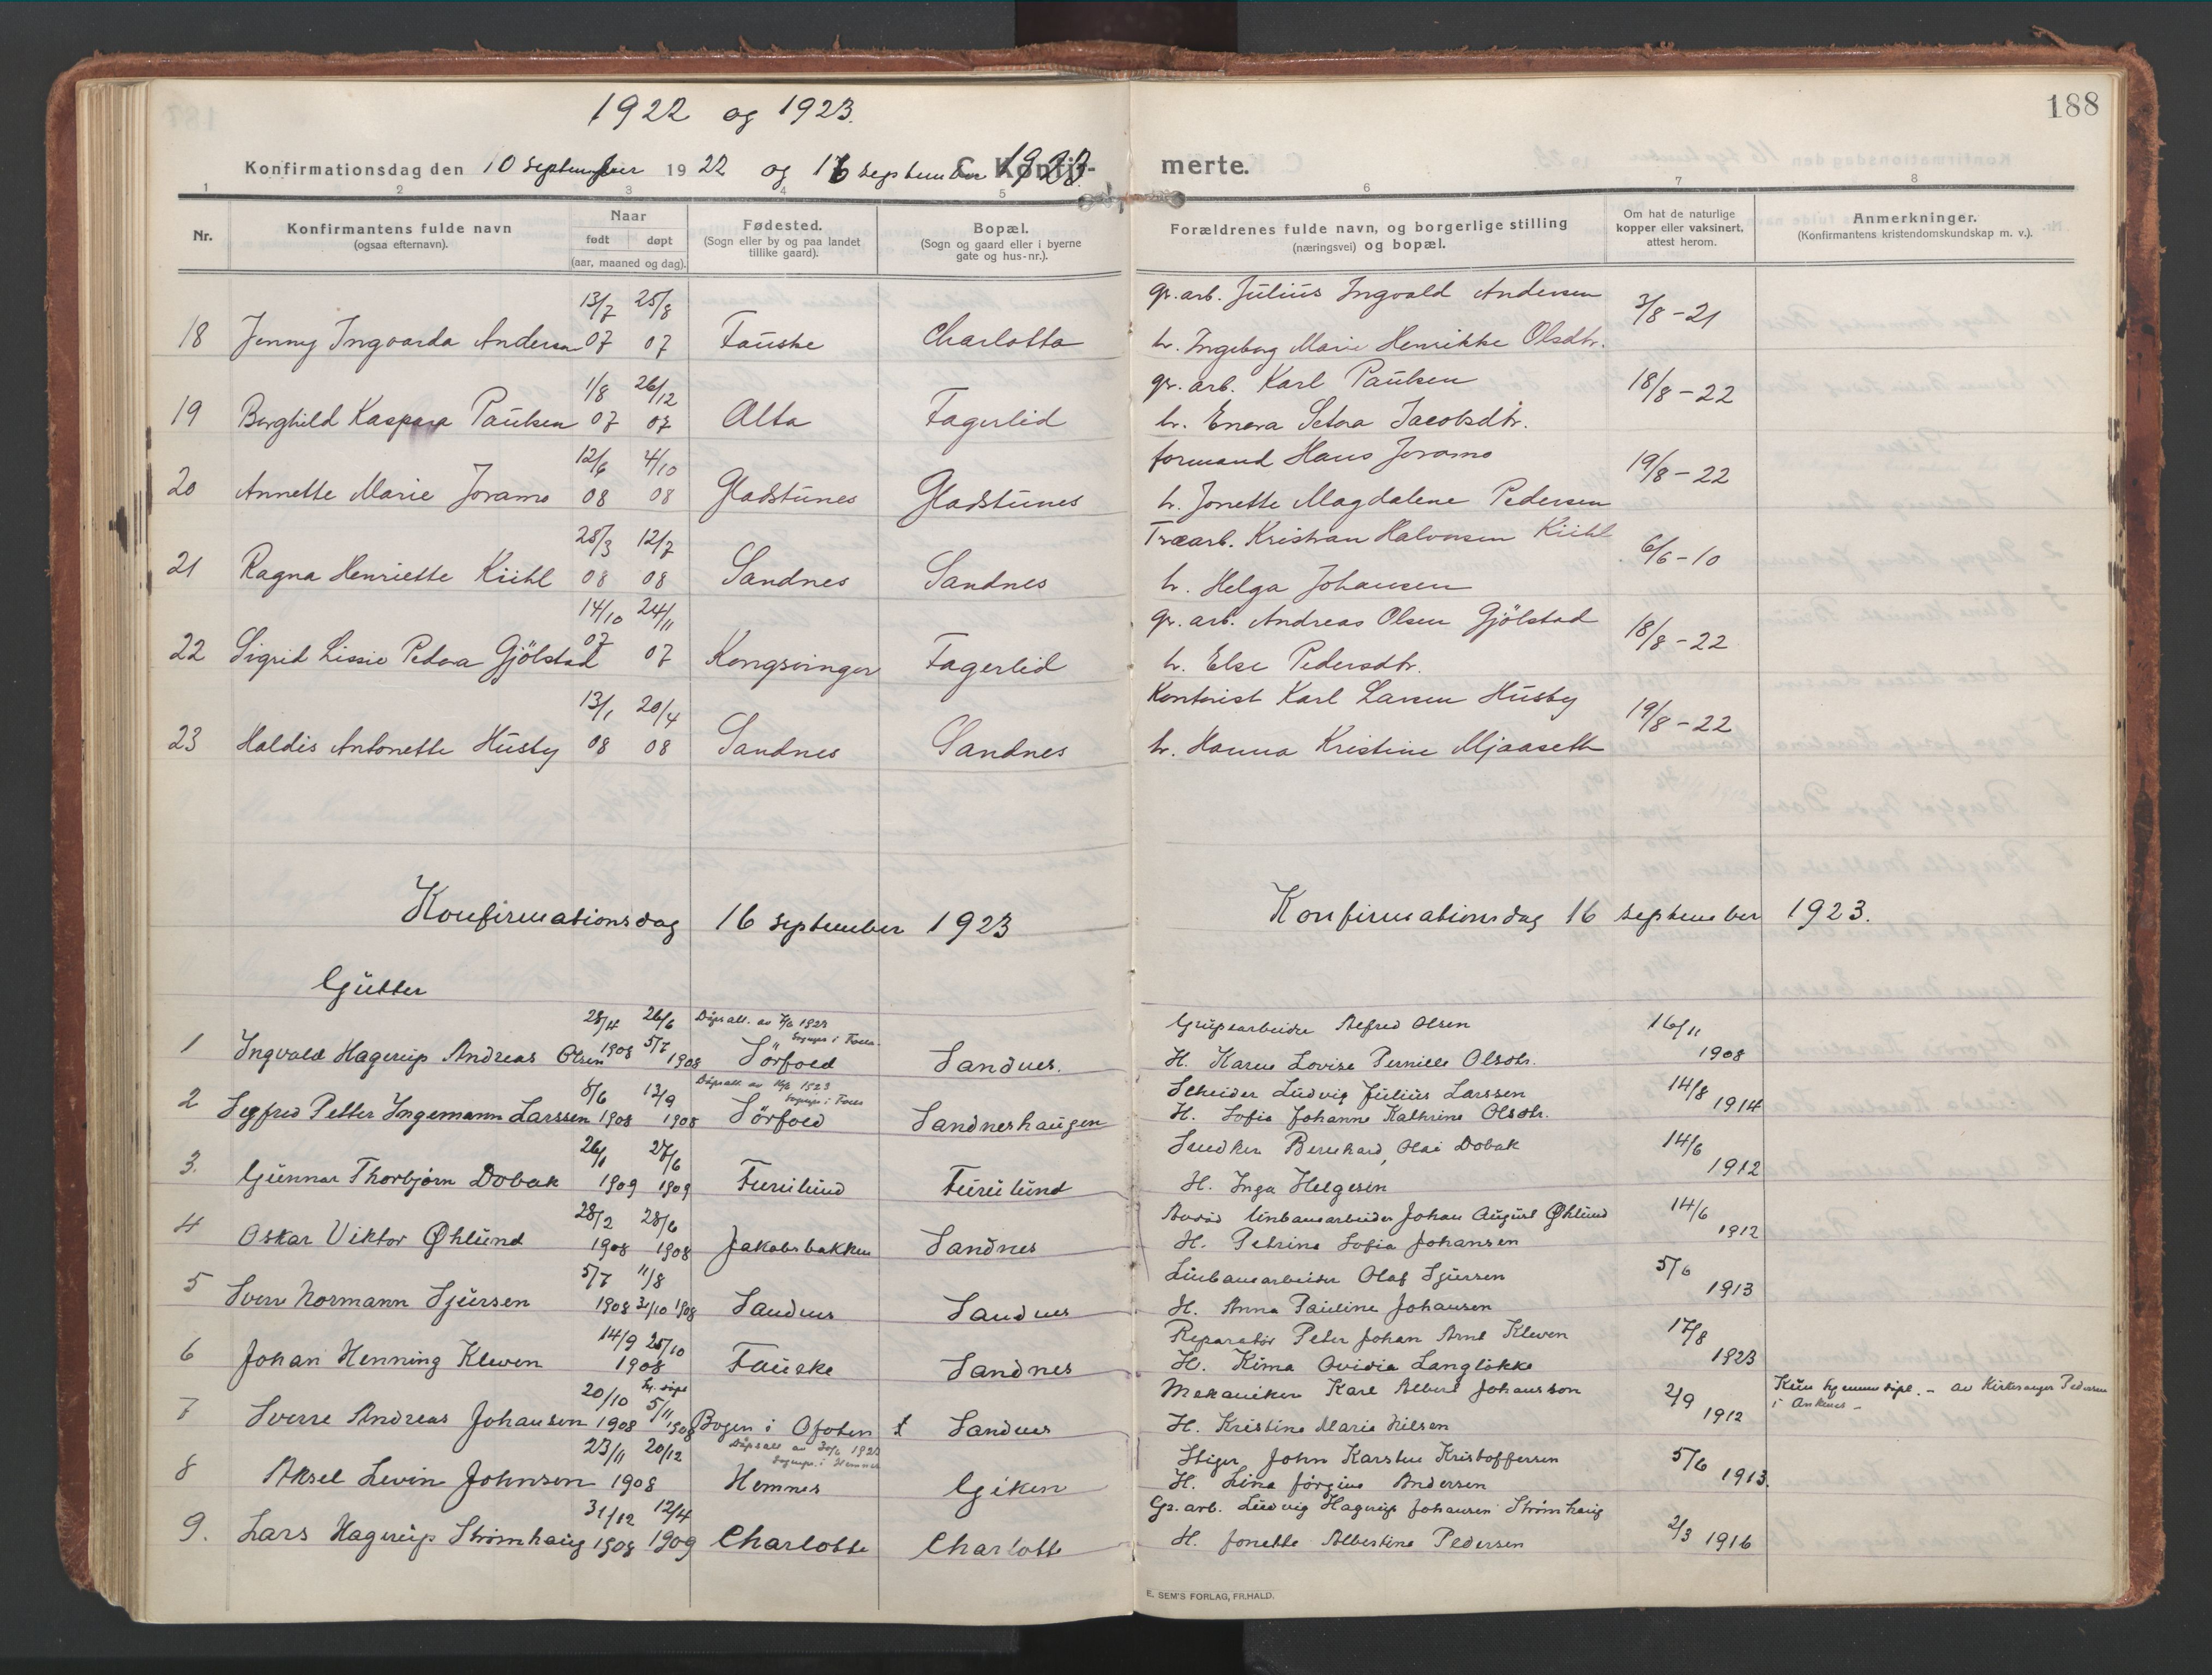 1922 og 1923.
188
Konfirmationsdag den 10 september 1922 og 16 september 1923. C. Konfir-
merte.
1 2 3 4 5 6 7 8
Nr.
Konfirmantens fulde navn
(ogsaa efternavn).
Naar
født døpt
(aar, maaned og dag).
Fødested.
(Sogn eller by og paa landet
tillike gaard).
Bopæl.
(Sogn og gaard eller i byerne
gate og hus-nr.).
Forældrenes fulde navn, og borgerlige stilling
(næringsvei) og bopæl.
Om hat de naturlige
kopper eller vaksinert,
attest herom.
Anmerkninger.
(Konfirmantens kristendomskundskap m. v.).
13/7 25/8 gr. arb. Julius Ingvald Andersen 3/8-21
18 Jenny Ingvarda Andersen 07 07 Fauske Charlotta h. Ingeborg Marie Henrikke Olsdtr.
1/8 26/12 gr. arb. Karl Paulsen 18/8-22
19 Borghild Kaspara Paulsen 07 07 Alta Fagerlid h. Jacobsdtr.
12/6 4/10 formand Hans Joramo 19/8-22
20 Annette Marie Joramo 08 08 Gladstunes Gladstunes h. Jonette Magdalene Pedersen
28/3 12/7 Træarb. Kristian Halvorsen Kiihl 6/6-10
21 Ragna Henriette Kiihl 08 08 Sandnes Sandnes h. Helga Johansen
14/10 24/11 gr. arb. Andreas Olsen Gjölstad 18/8-22
22 Sigrid Lissie Pedora Gjölstad 07 07 Kongsvinger Fagerlid h. Else Pedersdtr.
13/1 20/4 Kontorist Karl Larsen Husby 19/8-22
23 Haldis Antonette Husby 08 08 Sandnes Sandnes h. Hanna Kristine Mjaaseth
Konfirmationsdag 16 september 1923 Konfirmationsdag 16 september 1923.
Gutter
28/4 26/6 Dåpsatt. av 7/6 1923 Grubearbeider Alfred Olsen 16/11
Sognepr. i Folla
1 Ingvald Hagerup Andreas Olsen 1908 5/7 1908 Sörfold Sandnes. H. Karen Lovise Pernille Olsdtr. 1908
8/6 13/9 Dåpsatt. av 1923 Skeider Ludvig Julius Larssen 14/8
Sognepr. i Folla
2 Segfred Petter Ingemann Larssen 1908 1908 Sörfold Sandneshaugen H. Sofie Johanne Kathrine Olsdtr. 1914
26/1 27/6 Smedker Bernhard Olai Dobak 14/6
3. Gunnar Thorbjørn Dobak 1909 1909 Furulund Furulund H. Inga Helgesen 1912
28/2 28/6 Avdød linbanearbeider Johan August Øhlund 14/6
4 Oskar Viktor Øhlund 1908 1908 Jakobsbakken Sandnes H. Petrine Sofie Johansen 1912
5/7 11/8 Linbanearbeider Olaf Sjursen 5/6
5 Sverr Normann Sjursen 1908 31/10 1908 Sandnes Sandnes H. Anna Pauline Johansen 1913
14/9 25/10 Reparatør Peter Johan Arnt Kleven 17/8
6 Johan Henning Kleven 1908 Fauske Sandnes H. Kima Ovidia Langløkke 1923
20/10 hj. døpt 5/11 Mekaniker Karl Albert Johansson 2/9 Kun hjemmedøpt. - av Kirkesanger Pedersen
i Ankenes -
7 Sverre Andreas Johansen 1908 1908 Bogen i Ofoten Sandnes H. Kristine Marie Nilsen 1912
23/11 20/12 Dåpsatt av 1923 Stiger John Karsten Kristoffersen 5/6
Sognepr. i Hemnes
8 Aksel Levin Johnsen 1908 Hemnes Giken H. Lina Jörgine Andersen 1913.
31/12 12/4 Gr. arb. Ludvig Hagerup Johansen Strømhaug
9. Lars Hagerup Strømhaug 1908 1909 Charlotte Charlotte H. Jonette Albertine Pedersen 2/3 1916
E. SEM'S FORLAG, FR.HALD.